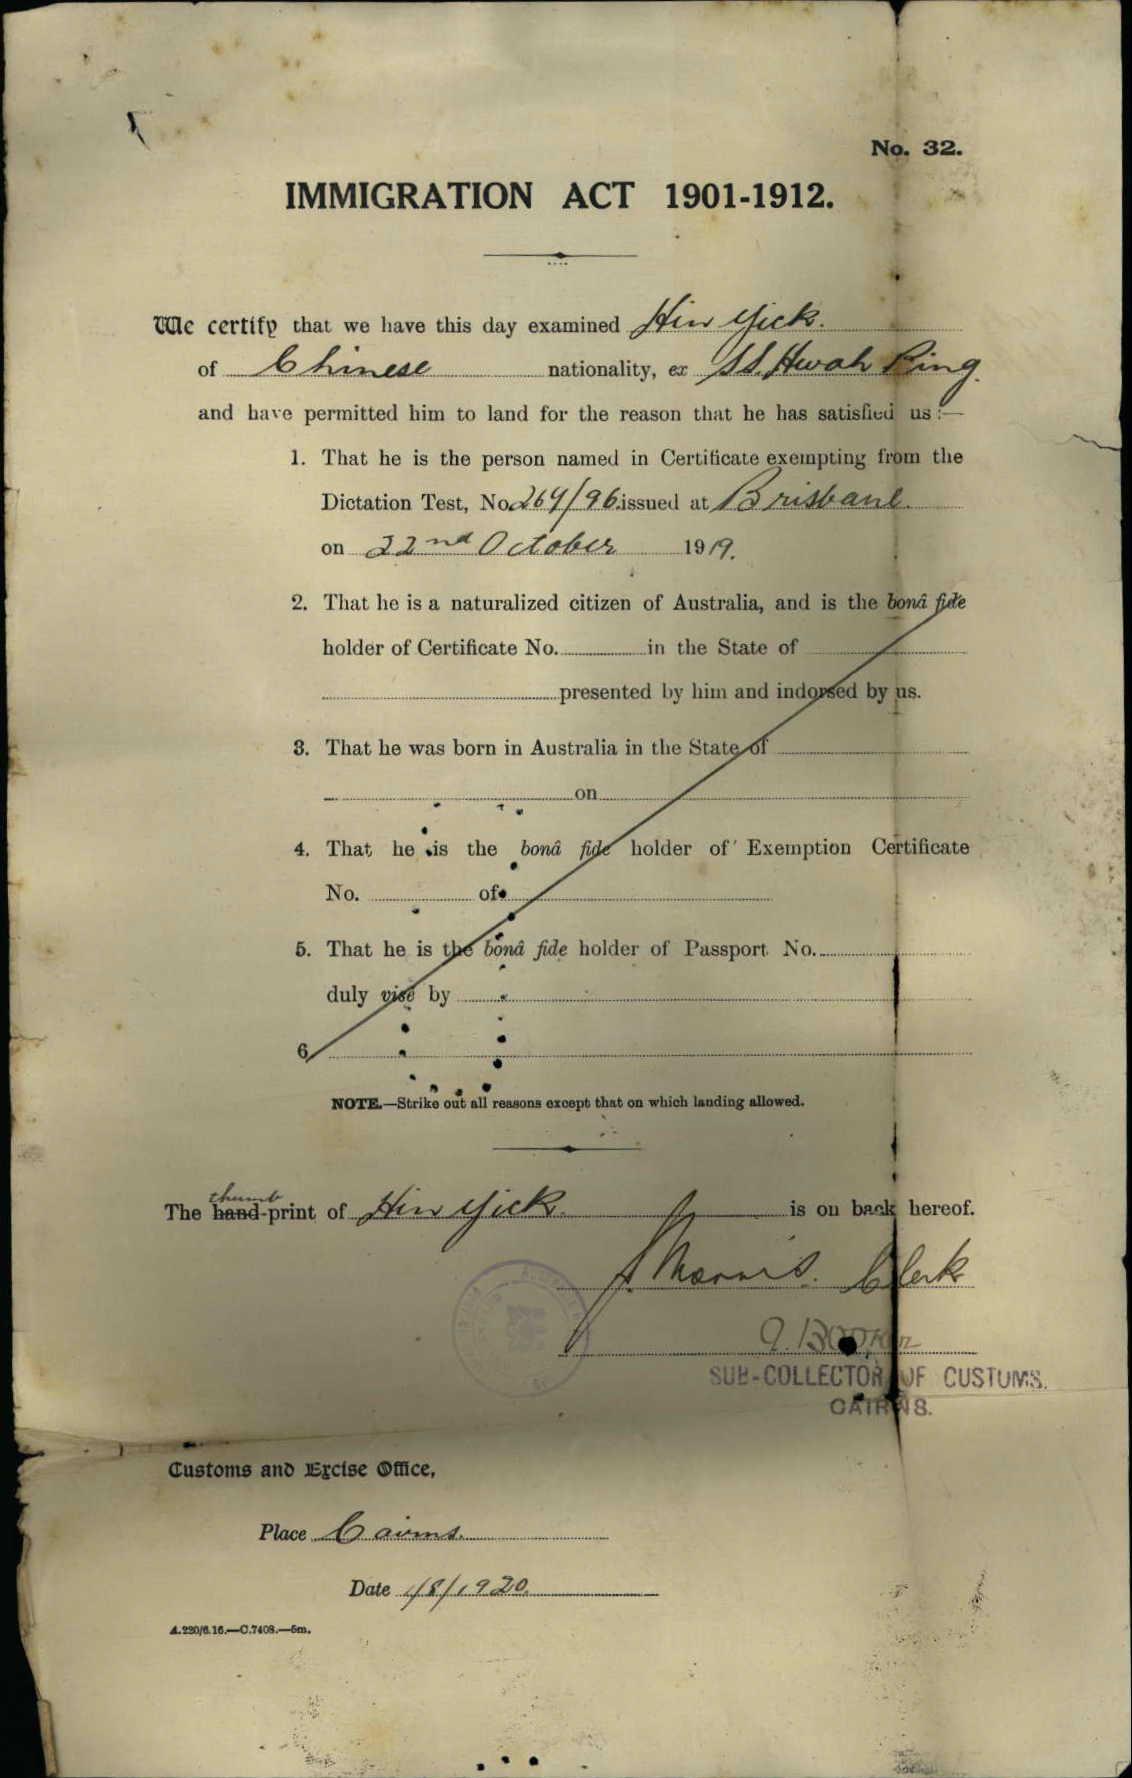 No. 32.
IMMIGRATION ACT 1901-1912.
We certify that we have this day examined Hin Yick.
of Chinese nationality, ex S.S. Hwah Ping.
and have permitted him to land for the reason that he has satisfied us :—
1. That he is the person named in Certificate exempting from the
Dictation Test, No. 264/96. issued at Brisbane.
on 22nd October 1919.
2. That he is a naturalized citizen of Australia, and is the bonâ fide
holder of Certificate No. in the State of
presented by him and indorsed by us.
3. That he was born in Australia in the State of
on
4. That he is the bonâ fide holder of Exemption Certificate
No. of
5. That he is the bonâ fide holder of Passport No.
duly visé by
6
NOTE.—Strike out all reasons except that on which landing allowed.
thumb
The hand-print of Hin Yick. is on back hereof.
J. Morris. Clerk
SUB-COLLECTOR OF CUSTOMS.
CAIRNS.
Customs and Excise Office,
Place Cairns.
Date 1/8/1920.
A.220/6.16.—C.7408.—5m.